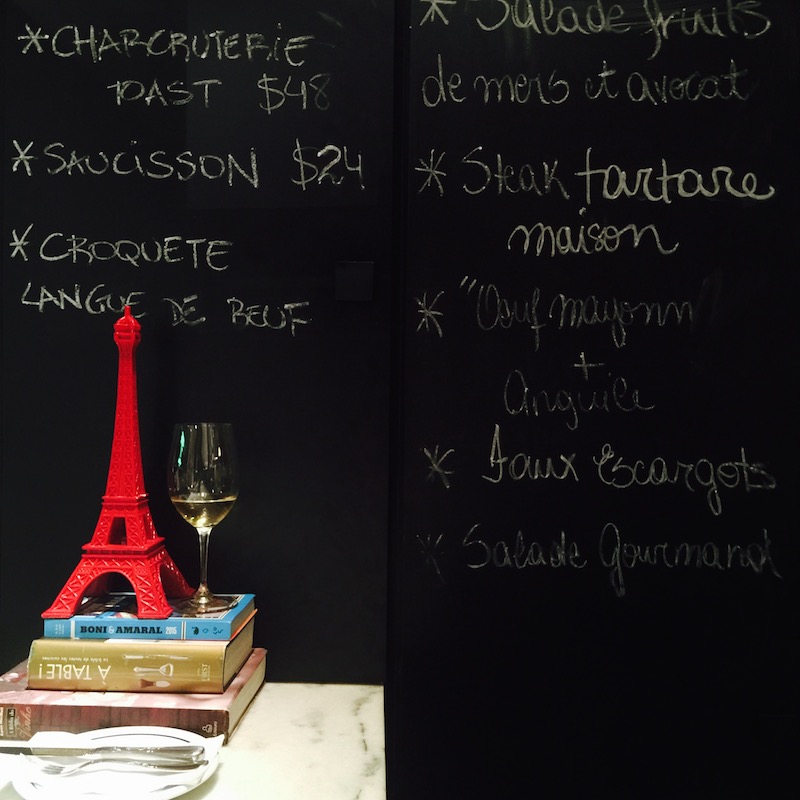 *CHARCRUTERIE
TOAST $48
*SAUCISSON $24
*CROQUETE
LANGUE DE BEUF
* Salade fruits
de mers et avocat
* Steak tartare
maison
* "Oeuf mayonn"
+
Anguile
* Faux Escargots
* Salade Gourmand
BONI & AMARAL
À TABLE!